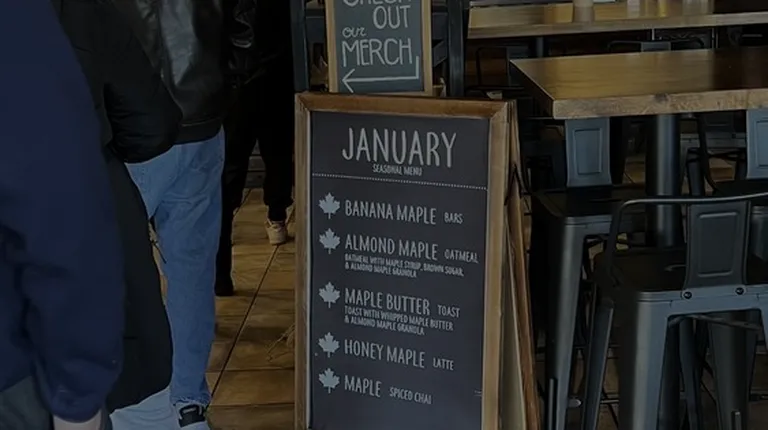 CHECK
OUT
our
MERCH
JANUARY
SEASONAL MENU
BANANA MAPLE BARS
ALMOND MAPLE OATMEAL
OATMEAL WITH MAPLE SYRUP, BROWN SUGAR,
& ALMOND MAPLE GRANOLA
MAPLE BUTTER TOAST
TOAST WITH WHIPPED MAPLE BUTTER
& ALMOND MAPLE GRANOLA
HONEY MAPLE LATTE
MAPLE SPICED CHAI